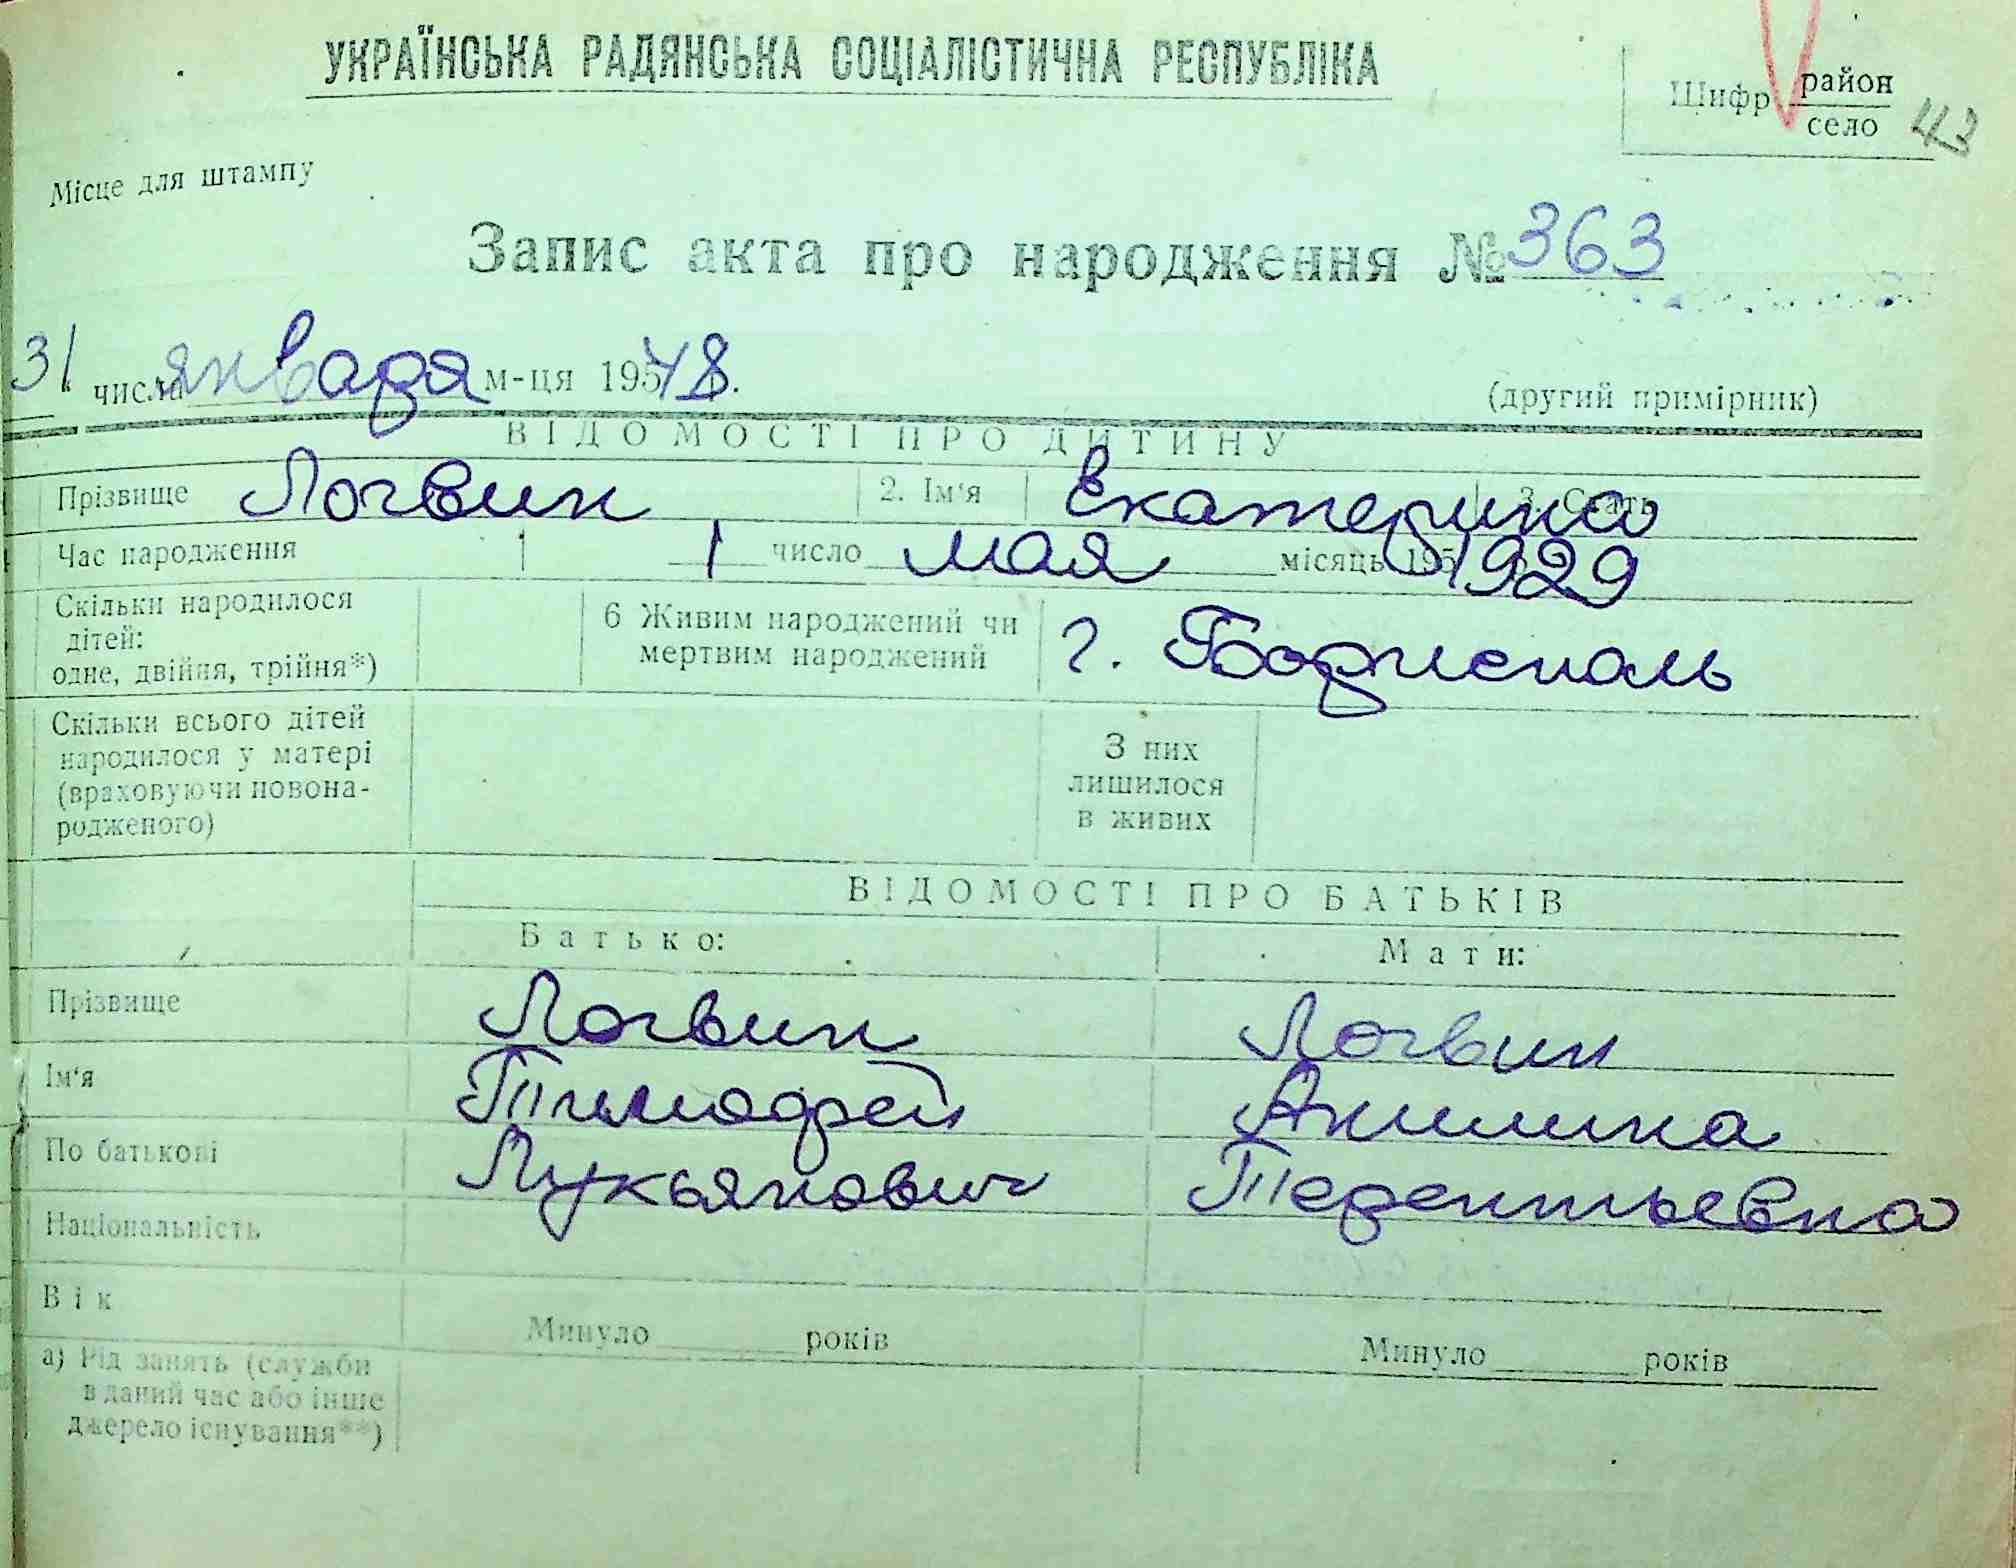 УКРАЇНСЬКА РАДЯНСЬКА СОЦІАЛІСТИЧНА РЕСПУБЛІКА
Шифр район
село 43
Місце для штампу
Запис акта про народження № 363
31 числа января м-ця 195 48.
(другий примірник)
ВІДОМОСТІ ПРО ДИТИНУ
Прізвище Логвин 2. Ім'я Екатерина 3. Стать
Час народження 1 число мая місяць 195 1929
Скільки народилося
дітей:
одне, двійня, трійня*)
6 Живим народжений чи
мертвим народжений
г. Борисполь
Скільки всього дітей
народилося у матері
(враховуючи новона-
родженого)
З них
лишилося
в живих
ВІДОМОСТІ ПРО БАТЬКІВ
Батько: Мати:
Прізвище Логвин Логвин
Ім'я Тимофей Акилина
По батькові Лукьянович Терентьевна
Національність
Вік Минуло років Минуло років
а) Рід занять (служби
в даний час або інше
джерело існування**)